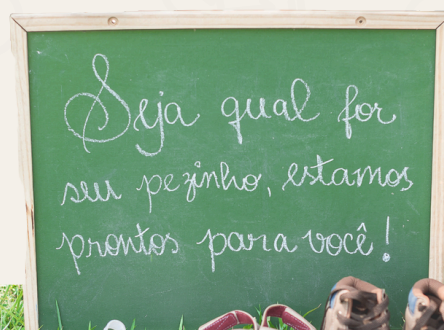 Seja qual for
seu pezinho, estamos
prontos para você!